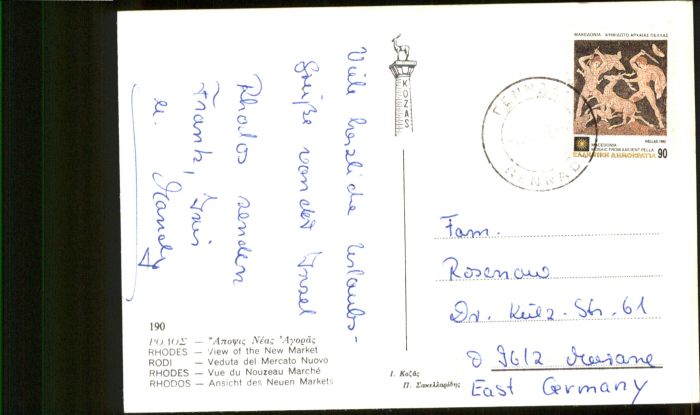 Viele herzliche Urlaubs-
Grüße von der Insel
Rhodos senden
Frank, Iris
u. Mandy
190
ΡΟΔΟΣ — Ἄποψις Νέας Ἀγορᾶς
RHODES — View of the New Market
RODI — Veduta del Mercato Nuovo
RHODES — Vue du Nouzeau Marché
RHODOS — Ansicht des Neuen Markets
KOZAS
Ι. Κοζᾶς
Π. Σακελλαρίδης
ΜΑΚΕΔΟΝΙΑ ΨΗΦΙΔΩΤΟ ΑΡΧΑΙΑΣ ΠΕΛΛΑΣ
HELLAS 1992
MACEDONIA
MOSAIC FROM ANCIENT PELLA
ΕΛΛΗΝΙΚΗ ΔΗΜΟΚΡΑΤΙΑ 90
Fam.
Rosenow
Dr. Külz-Str. 61
O 9612 Meerane
East Germany